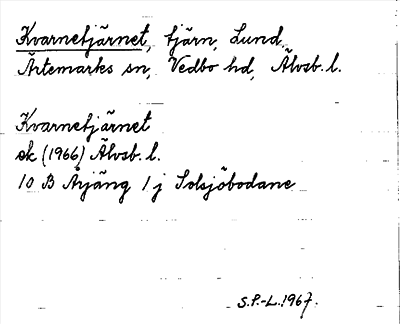 Kvarnetjärnet, tjärn, Lund,
Ärtemarks sn, Vedbo hd, Älvsb. l.
Kvarnetjärnet
ek (1966) Älvsb. l.
10 B Årjäng 1 j Solsjöbodane
S.P.-L. 1967.